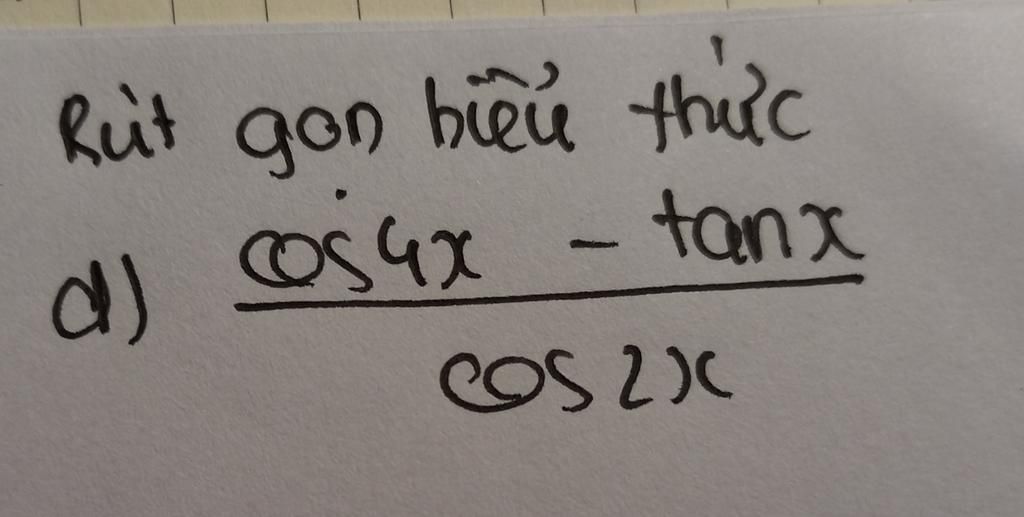 Rút gọn biểu thức
d) \frac{cos4x - tanx}{cos2x}